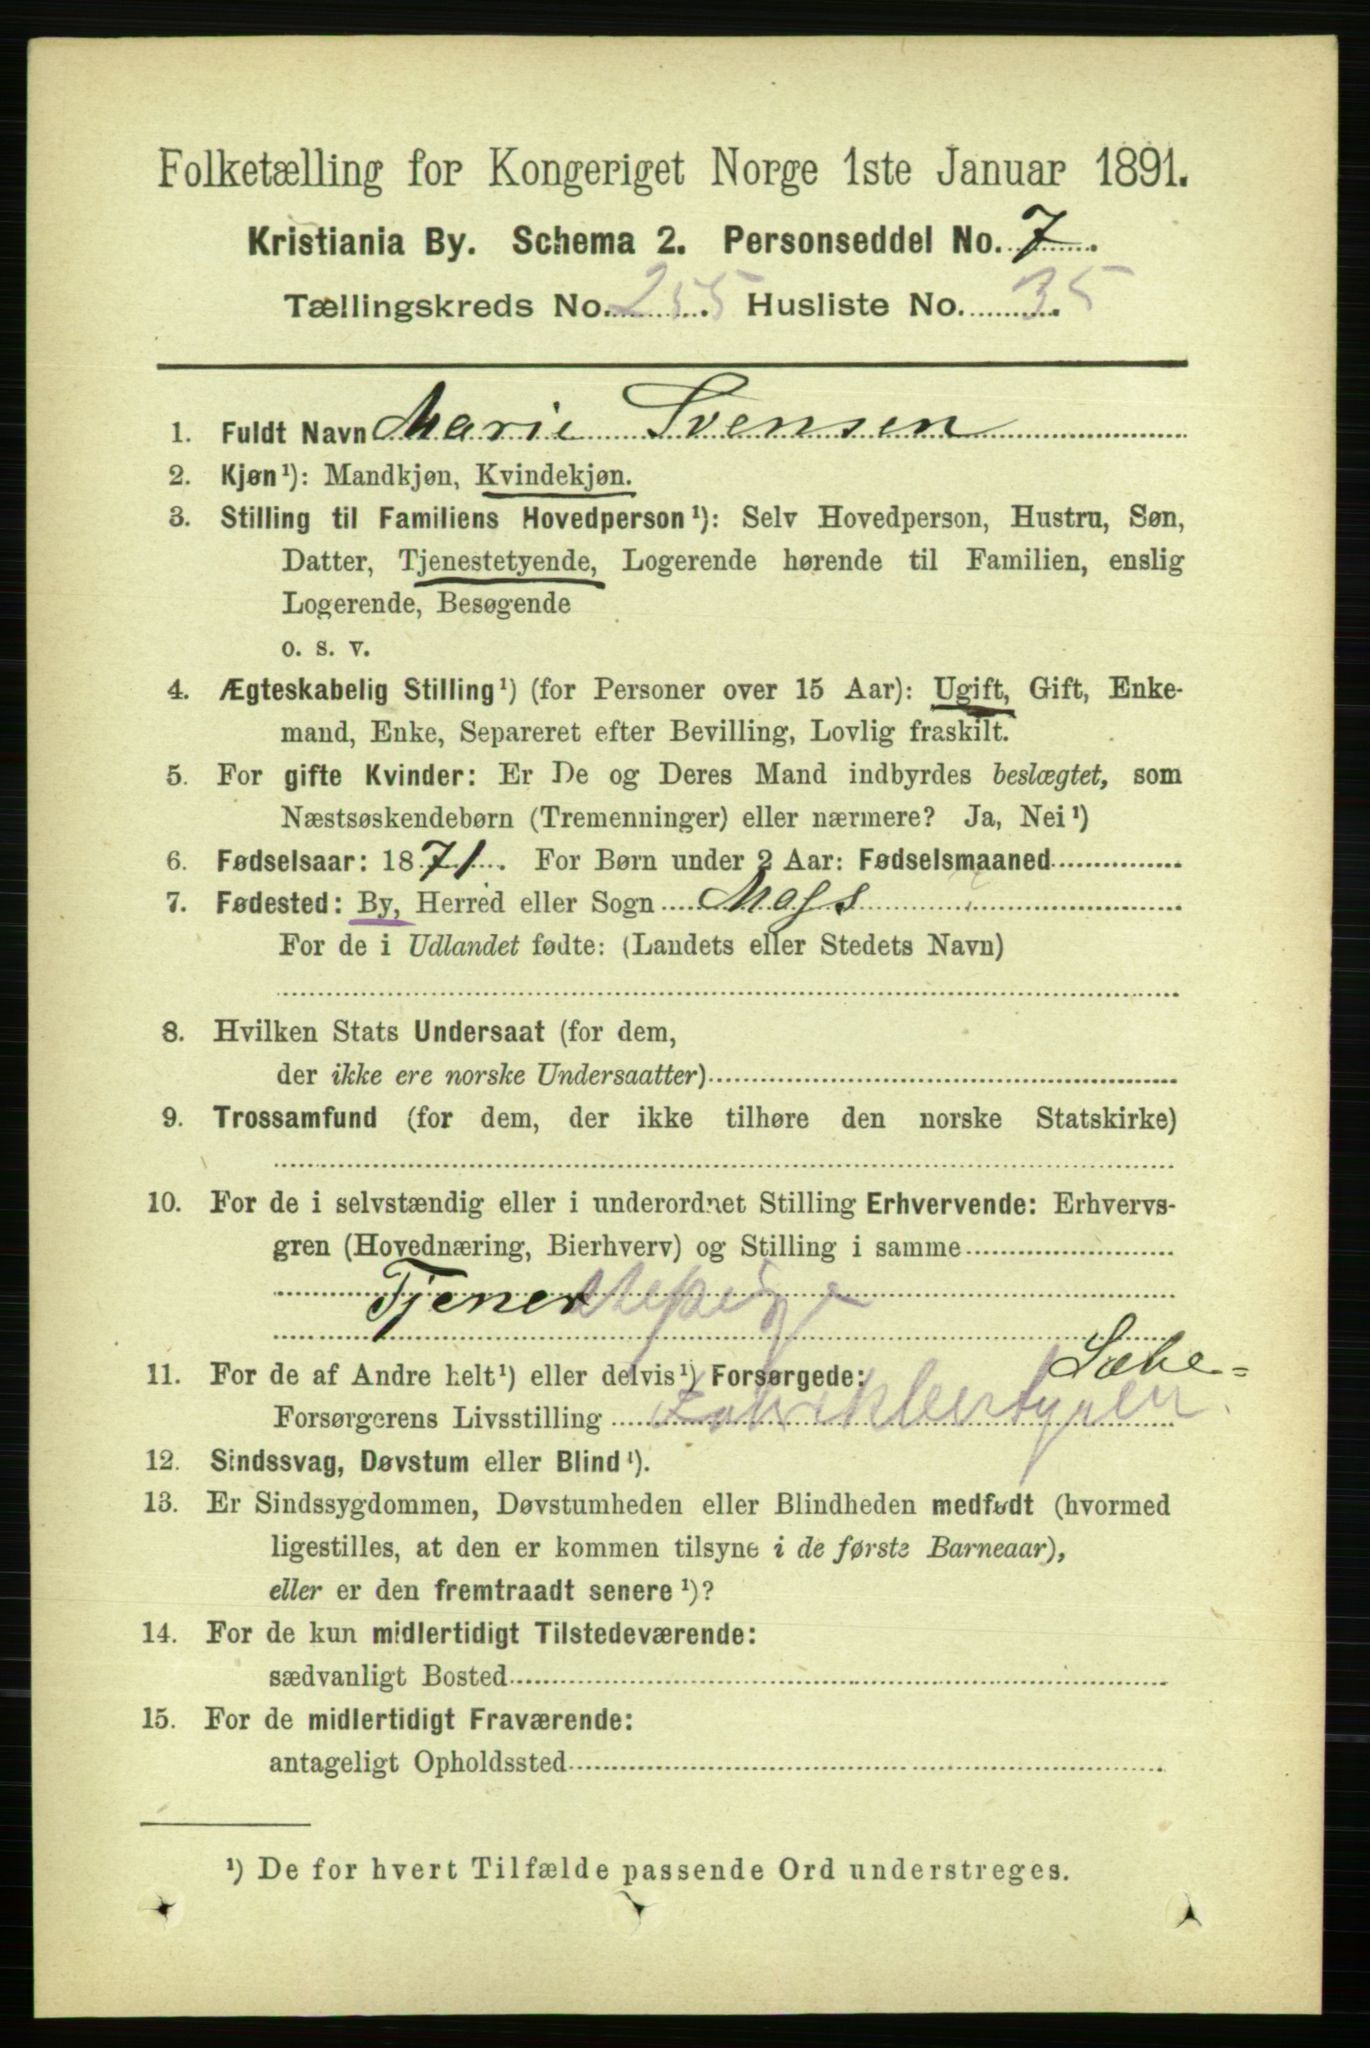 Folketælling for Kongeriget Norge 1ste Januar 1891.
Kristiania By. Schema 2. Personseddel No. 7.
Tællingskreds No. 255. Husliste No. 35.
1. Fuldt Navn Marie Svensen
2. Kjøn¹): Mandkjøn, Kvindekjøn.
3. Stilling til Familiens Hovedperson¹): Selv Hovedperson, Hustru, Søn,
Datter, Tjenestetyende, Logerende hørende til Familien, enslig
Logerende, Besøgende
o. s. v.
4. Ægteskabelig Stilling¹) (for Personer over 15 Aar): Ugift, Gift, Enke-
mand, Enke, Separeret efter Bevilling, Lovlig fraskilt.
5. For gifte Kvinder: Er De og Deres Mand indbyrdes beslægtet, som
Næstsøskendebørn (Tremenninger) eller nærmere? Ja, Nei¹)
6. Fødselsaar: 1871. For Børn under 2 Aar: Fødselsmaaned
7. Fødested: By, Herred eller Sogn Moss
For de i Udlandet fødte: (Landets eller Stedets Navn)
8. Hvilken Stats Undersaat (for dem,
der ikke ere norske Undersaatter)
9. Trossamfund (for dem, der ikke tilhøre den norske Statskirke)
10. For de i selvstændig eller i underordnet Stilling Erhvervende: Erhvervs-
gren (Hovednæring, Bierhverv) og Stilling i samme
Tjener
11. For de af Andre helt¹) eller delvis¹) Forsørgede: Sæbe=
Forsørgerens Livsstilling
12. Sindssvag, Døvstum eller Blind¹).
13. Er Sindssygdommen, Døvstumheden eller Blindheden medfødt (hvormed
ligestilles, at den er kommen tilsyne i de første Barneaar),
eller er den fremtraadt senere¹)?
14. For de kun midlertidigt Tilstedeværende:
sædvanligt Bosted
15. For de midlertidigt Fraværende:
antageligt Opholdssted
¹) De for hvert Tilfælde passende Ord understreges.